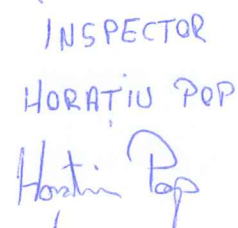 INSPECTOR
HORATIU POP
Horatiu Pop